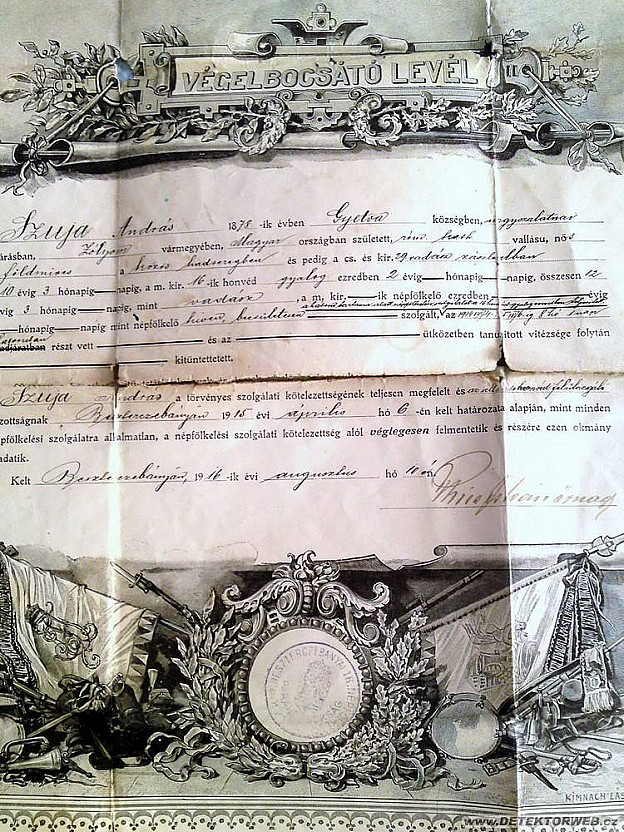 VÉGELBOCSÁTÓ LEVÉL
Szuja András 1878-ik évben Gyetva községben, nagyszalatnai
árásban, Zólyom vármegyében, Magyar országban született, róm. kath. vallásu, nős
földmíves a közös hadseregben és pedig a cs. és kir. 29 vadász zászlóaljban
10 évig 3 hónapig — napig, a m. kir. 16-ik honvéd gyalog ezredben 2 évig — hónapig — napig, összesen 12
vig 3 hónapig — napig, mint a m. kir. — ik népfölkelő ezredben — évig
— hónapig — napig mint népfölkelő híven, becsületesen szolgált, az
részt vett — és az — ütközetben tanusított vitézsége folytán
— kitüntettetett.
Szuja András a törvényes szolgálati kötelezettségének teljesen megfelelt és az
zottságnak Beszterczebányán 1915 évi április hó 6-én kelt határozata alapján, mint minden
pfölkelési szolgálatra alkalmatlan, a népfölkelési szolgálati kötelezettség alól véglegesen felmentetik és részére ezen okmány
adatik.
Kelt Beszterczebányán, 1916-ik évi augusztus hó 10 én
BESZTERCZEBÁNYAI
KIMNACH LÁS
www.DETEKTORWEB.cz